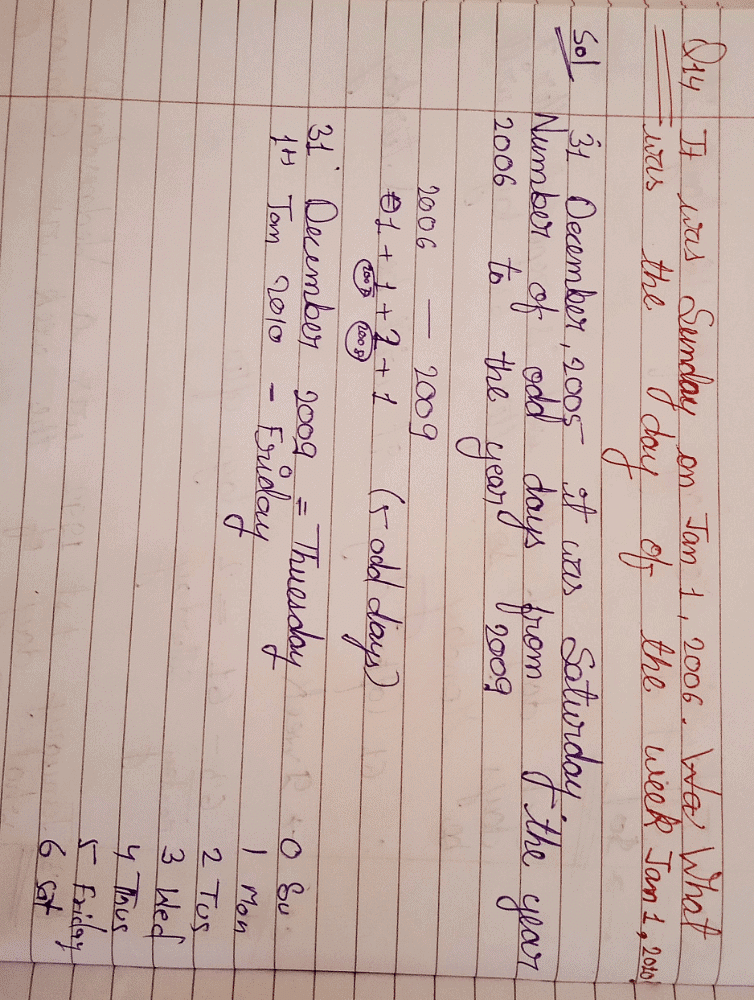 Q14 It was Sunday on Jan 1, 2006. Wa What
was the day of the week Jan 1, 2010
Sol 31 December, 2005 it was Saturday
Number of odd days from the year
2006 to the year 2009
2006 — 2009
1 + 1 + 2 + 1 (5 odd days)
2007 2008
31 December 2009 = Thuesday
1st Jan 2010 - Friday
0 Su
1 Mon
2 Tus
3 Wed
4 Thus
5 Friday
6 Sat